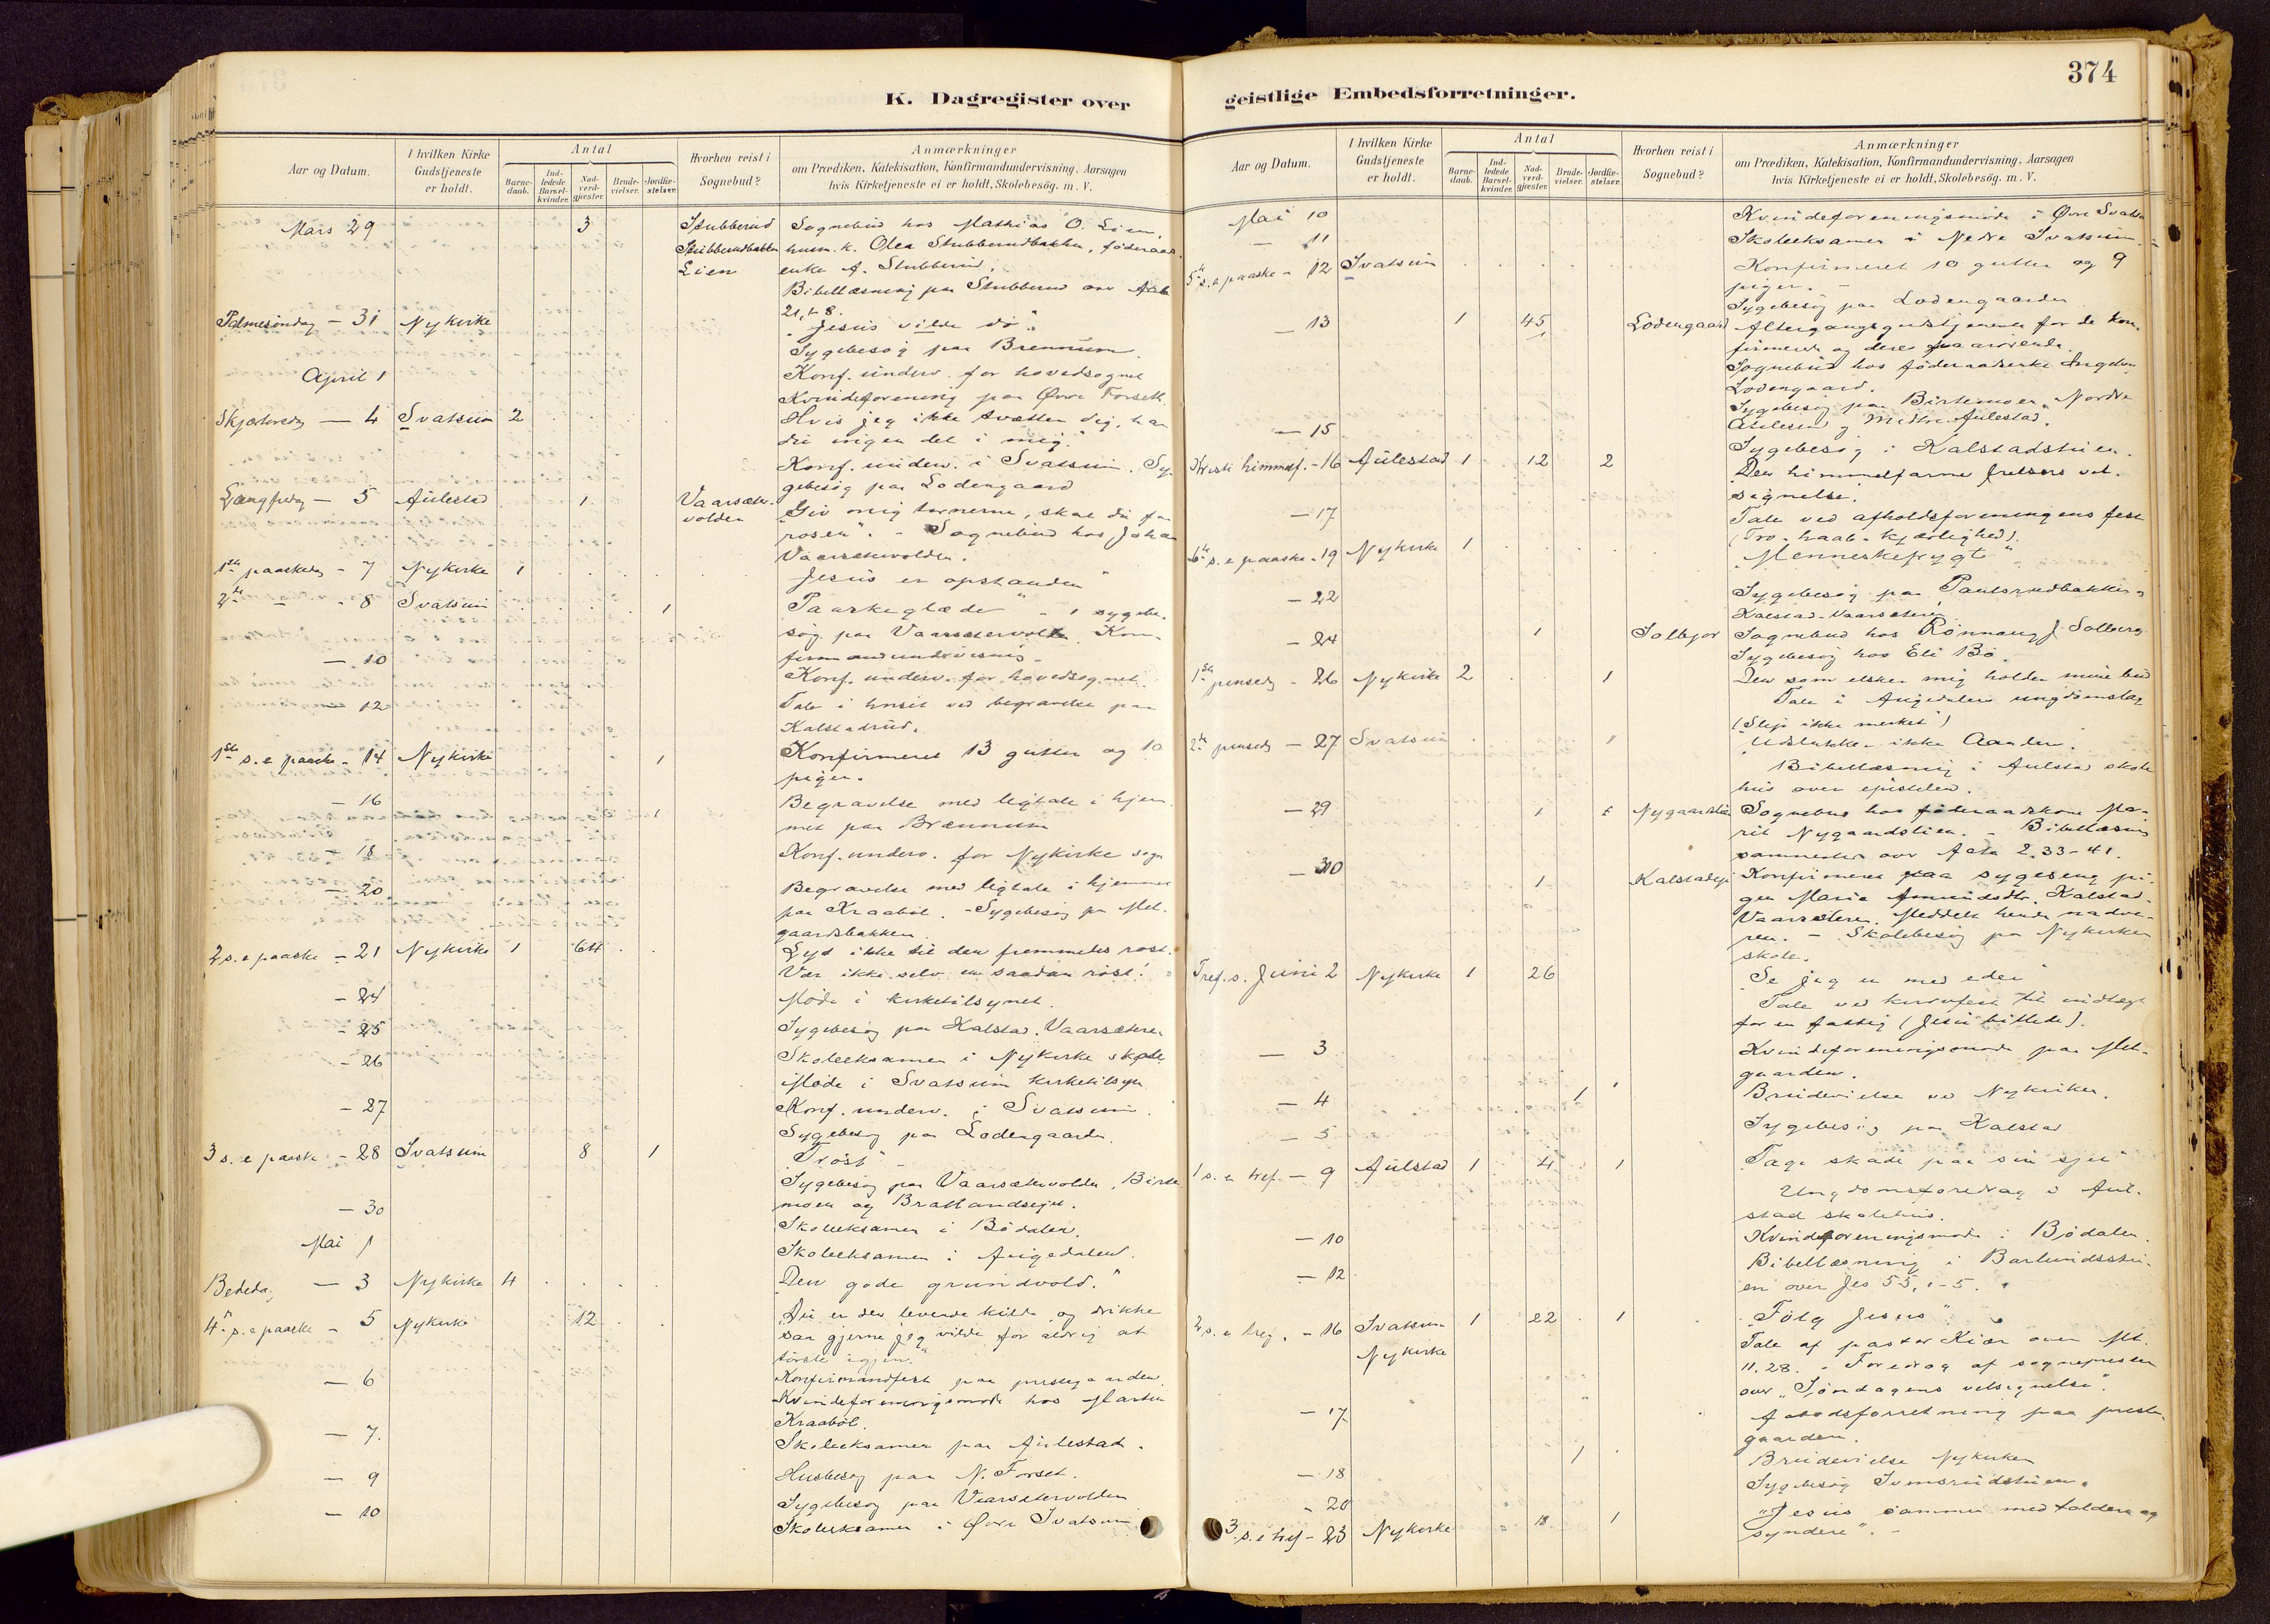 374
K. Dagregister over
geistlige Embedsforretninger.
Aar og Datum.
I hvilken Kirke Gudstjeneste er holdt.
Antal
Barne-daab.
Ind-ledede Barsel-kvinder.
Nad-verd-gjæster.
Brude-vielser.
Jordfæ-stelser.
Hvorhen reist i Sognebud?
Anmærkninger
om Prædiken, Katekisation, Konfirmandundervisning, Aarsagen
hvis Kirketjeneste ei er holdt, Skolebesög. m. V.
Mars 29 3 Stubberud Sognebud hos Mathias O. Lien,
Stubberudbakken husm. k. Olea Stubberudbakken, föderaads
Lien enke A. Stubberud.
Bibellæsning paa Stubberud over
21, 1-8.
Palmesöndag — 31 Nykirke "Jesus vilde dö".
Sygebesög paa Brennum
April 1 Konf. underv. for hovedsognet
Kvindeforening paa Övre Forset
Skjærtorsdag — 4 Svatsum 2 Hvis jeg ikke tvætter dig, har
du ingen del i mig."
Konf. underv. i Svatsum. Sy-
gebesög paa Lodengaard
Langfredag — 5 Aulestad 1 Vaarsæter- "Giv mig tornerne, skal du faa
volden rosen". - Sognebud hos Johan
Vaarsætervolden.
1ste paaskedag - 7 Nykirke 1 Jesus er opstanden"
2den — - 8 Svatsum 1 "Paaskeglæde" - 1 sygebe-
sög paa Vaarsætervolden. Kon-
firmandundervisning.
— 10 Konf. underv. for hovedsognet.
— 12 Tale i huset ved begravelse paa
Kalstadrud.
1ste s. e paaske - 14 Nykirke 1 Konfirmeret 13 gutter og 10
piger.
— 16 1 Begravelse med ligtale i hjem
met paa Brænnum
— 18 Konf. underv. for Nykirke sogn
— 20 Begravelse med ligtale i hjemmet
paa Kraaböl. - Sygebesög paa Mel-
gaardsbakken
2 s. e paaske — 21 Nykirke 1 64 Lyd ikke til den fremmedes röst.
Vær ikke selv en saadan röst!
— 24 Möde i kirketilsynet.
— 25 Sygebesög paa Kalstad, Vaarsæteren
— 26 Skoleeksamen i Nykirke skole
Möde i Svatsum kirketilsyn
— 27 Konf. underv. i Svatsum.
Sygebesög paa Lodengaarden.
3 s. e paaske — 28 Svatsum 8 1 "Tröst" -
Sygebesög paa Vaarsætervolden, Birke
moen og Brattandseiet.
— 30 Skoleeksamen i Bödalen.
Mai 1 Skoleeksamen i Augedalen.
Bededag — 3 Nykirke 4 "Den gode grundvold."
4de s. e paaske — 5 Nykirke 12 "Du er den levende kilde, og drikke
saa gjerne jeg vilde for aldrig at
törste igjen."
— 6 Konfirmandfest paa prestegaarden.
Kvindeforeningsmöde hos Martin
Kraaböl.
— 7. Skoleeksamen paa Aulestad.
— 9 Husbesög paa N. Forset.
Sygebesög paa Vaarsætervolden
— 10 Skoleeksamen i Övre Svatsum
Aar og Datum.
I hvilken Kirke Gudstjeneste er holdt.
Antal
Barne-daab.
Ind-ledede Barsel-kvinder.
Nad-verd-gjæster.
Brude-vielser.
Jordfæ-stelser.
Hvorhen reist i Sognebud?
Anmærkninger
om Prædiken, Katekisation, Konfirmandundervisning, Aarsagen
hvis Kirketjeneste ei er holdt, Skolebesög. m. V.
Mai 10 Kvindeforeningsmöde i Övre Svatsum
— 11 Skoleeksamen i Nedre Svatsum.
5te s. e paaske — 12 Svatsum Konfirmeret 10 gutter og 9
piger. -
Sygebesög paa Lodengaarden
— 13 1 45 Lodengaard Altergangsgudstjeneste for de kon-
1 firmerede og deres paarörende
Sognebud hos föderaadsenke Ingeborg
Lodengaard.
— 15 Sygebesög paa Birkemoen, Nordre
Aulestad og Midtre Aulestad.
Sygebesög i Kalstadstuen.
Kristi himmelf. - 16 Aulestad 1 12 2 Den himmelfarne frelsers vel-
signelse.
— 17 Tale ved afholdsforeningens fest
(Tro - haab - kjærlighed).
6te s. e paaske - 19 Nykirke 1 "Menneskefrygt"
— 22 Sygebesög paa Paulsrudbakken
Kalstad-Vaarsæteren
— 24 1 Solberg Sognebud hos Rönnaug J. Solberg
Sygebesög hos Eli Bö
1ste pinsedag — 26 Nykirke 2 1 Den som elsker mig holder mine bud
Tale i Augedalens ungdomslag
(Sleip ikke merket)
2den pinsedag — 27 Svatsum 1 "Udslukker ikke Aanden."
Bibellæsning i Aulstad skole
hus over epistelen.
— 29 1 1 Nygaardslien Sognebud hos föderaadskone Ma-
rit Nygaardslien. - Bibellæsning
sammesteds over Acta 2, 33-41.
— 30 1 Kalstadeie Konfirmeret paa sygeseng pi-
gen Marie Amundsdtr. Kalstad-
Vaarsæteren. Meddelt hende nadve-
ren. - Skolebesög paa Nykirken
skole.
Tref. s. Juni 2 Nykirke 1 26 "Se jeg er med eder"
Tale ved kurvfest til indtægt
for en fattig (Jesu billede).
— 3 Kvindeforeningsmöde paa Mel-
gaarden.
— 4 1 Brudevielse ved Nykirken.
— 5 Sygebesög paa Kalstad
1 s. e tref. — 9 Aulstad 1 4 1 "Tage skade paa sin sjel"
Ungdomsforedrag i Aul-
stad skolehus.
— 10 Kvindeforeningsmöde i Bödalen.
— 12 Bibellæsning i Barlundsstu-
en over Jes 55, 1-5.
2 s. e tref. — 16 Svatsum 1 22 1 "Fölg Jesus"
Nykirke Tale af pastor Kiær over Mt.
11, 28. - Foredrag af sognepresten
over "Söndagens velsignelse".
— 17 Aabodsforretning paa preste-
gaarden.
— 18 1 Brudevielse Nykirken
— 20 Sygebesög
3 s. e tref — 23 Nykirke 18 1 "Jesus sammen med toldere og
syndere". -